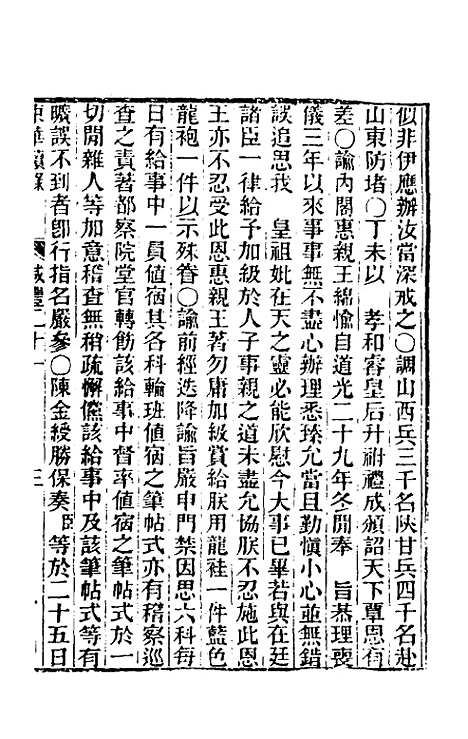 似非伊應辦汝當深戒之○調山西兵三千名陝甘兵四千名赴
山東防堵○丁未以　孝和睿皇后升祔禮成頒詔天下覃恩有
差○諭內閣惠親王綿愉自道光二十九年冬間奉　旨恭理喪
儀三年以來事事無不盡心辦理悉臻允當且勤慎小心並無錯
誤追思我　皇祖妣在天之靈必能欣慰今大事已畢若與在廷
諸臣一律給予加級於人子事親之道未盡允協朕不忍施此恩
王亦不忍受此恩惠親王著勿庸加級賞給朕用龍袿一件藍色
龍袍一件以示殊眷○諭前經迭降諭旨嚴申門禁因思六科每
日有給事中一員値宿其各科輪班値宿之筆帖式亦有稽察巡
查之責著都察院堂官轉飭該給事中督率値宿之筆帖式於一
切閒雜人等加意稽查無稍疏懈儻該給事中及該筆帖式等有
曠誤不到者卽行指名嚴參○陳金綬勝保奏臣等於二十五日
東華續錄　咸豐二十一　三